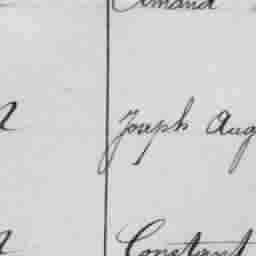 Amand
Joseph Aug
Constant